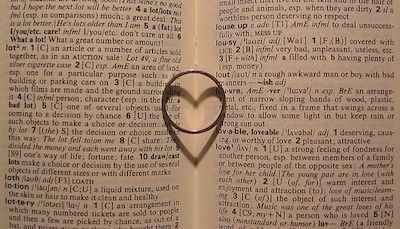 I hope the next lot will be better 4 a lot/lots
infml (esp. in comparisons) much; a great deal: This
is a lot better. | He's lot older than I am 5 a (fat) lot
I/you/etc. care! infml I/you/etc. don't care at all 6
What a lot! What a great number or amount!
lot² n 1 [C] an article or a number of articles sold
together, as in an AUCTION sale: Lot 49, a fine old
silver cigarette case 2 [C] esp. AmE an area of land,
esp. one for a particular purpose such as
building or parking cars on 3 [C] a building
which films are made and the ground surrounding
it 4 [C] infml person; character (esp. in the
bad lot) 5 [C] one of several objects used for
coming to a decision by chance 6 [U] the
such objects to make a choice or decision
by lot 7 [the S] the decision or choice made
this way: The lot fell to/on me 8 [C] share: The
divided the money and each went away with his
[S9] one's way of life; fortune; fate 10 draw/cast
lots make a choice or decision by the use of several
objects of different sizes or with different marks
loth adj [F3] LOATH
lotion n [C;U] a liquid mixture, used on
the skin or hair to make it clean and healthy
lottery n 1 [C] an arrangement in
which many numbered tickets are sold to people
and then a few are picked by chance, as out of a
hair of
people and animals, esp. when they are dirty 2
worthless person deserving no respect
louse up v adv [T] AmE infml to deal unsuccess-
fully with; MESS UP
lousy adj 1 [F;(B)] covered with
LICE 2 [B] infml very bad, unpleasant, useless, etc.
3 [F + with] infml a filled with b having plenty (esp.
of money)
lout n a rough awkward man or boy with bad
manners — ~ish adj
AmE -ver n esp. BrE an arrange-
ment of narrow sloping bands of wood, plastic,
metal, etc., fixed in a frame that swings across a
window to allow some light in but keep rain or
strong sun out
lovable, loveable adj 1 deserving, caus-
ing, or worthy of love 2 pleasant; attractive
love n 1 [U] a strong feeling of fondness for
another person, esp. between members of a family
or between people of the opposite sex: A mother's
love for her child. | The young pair are in love (with
each other) 2 [U (of, for)] warm interest and
enjoyment and attraction (to): love of music/learn-
ing 3 [C (of)] the object of such interest and
attraction: Music was one of the great loves of his
life 4 [C9; my+N] a person who is loved 5 [N]
also (nonstandard or humor) luv— BrE (a friendly